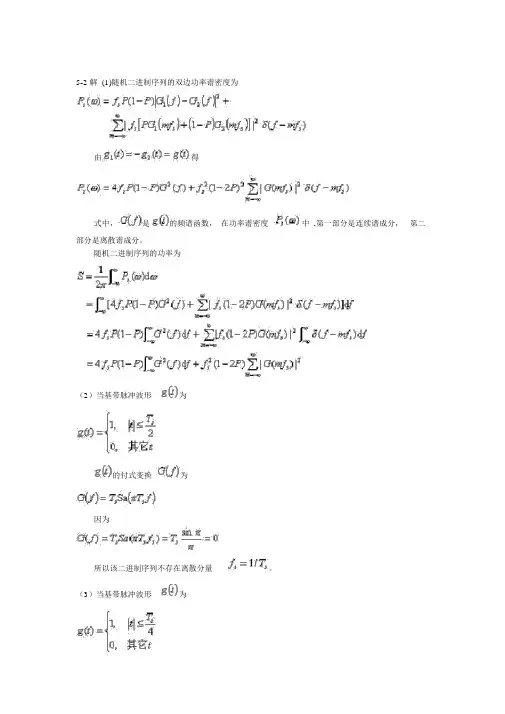 5-2 解 (1)随机二进制序列的双边功率谱密度为
P_s(ω) = f_s P(1−P)|G_1(f)−G_2(f)|² +
∑_{m=−∞}^{∞} |f_s[PG_1(mf_s)+(1−P)G_2(mf_s)]|² δ(f−mf_s)
由 g_1(t)=−g_2(t)=g(t) 得
P_s(ω) = 4f_s P(1−P)G²(f)+f_s²(1−2P)² ∑_{m=−∞}^{∞} |G(mf_s)|² δ(f−mf_s)
式中, G(f) 是 g(t) 的频谱函数, 在功率谱密度 P_s(ω) 中 ,第一部分是连续谱成分, 第二
部分是离散谱成分。
随机二进制序列的功率为
S = 1/2π ∫_{−∞}^{∞} P_s(ω)dω
= ∫_{−∞}^{∞} [4f_s P(1−P)G²(f)+ ∑_{m=−∞}^{∞} |f_s(1−2P)G(mf_s)|² δ(f−mf_s)]df
= 4f_s P(1−P)∫_{−∞}^{∞} G²(f)df+ ∑_{m=−∞}^{∞} |f_s(1−2P)G(mf_s)|² ∫_{−∞}^{∞} δ(f−mf_s)df
= 4f_s P(1−P)∫_{−∞}^{∞} G²(f)df+ f_s²(1−2P) ∑_{m=−∞}^{∞} |G(mf_s)|²
(2)当基带脉冲波形 g(t) 为
g(t) = { 1, |t| ≤ T_s/2
0, 其它t
g(t) 的付式变换 G(f) 为
G(f) = T_s Sa(πT_s f)
因为
G(f_s) = T_s Sa(πT_s f_s) = T_s sin π/π = 0
所以该二进制序列不存在离散分量 f_s = 1/T_s 。
(3)当基带脉冲波形 g(t) 为
g(t) = { 1, |t| ≤ T_s/4
0, 其它t